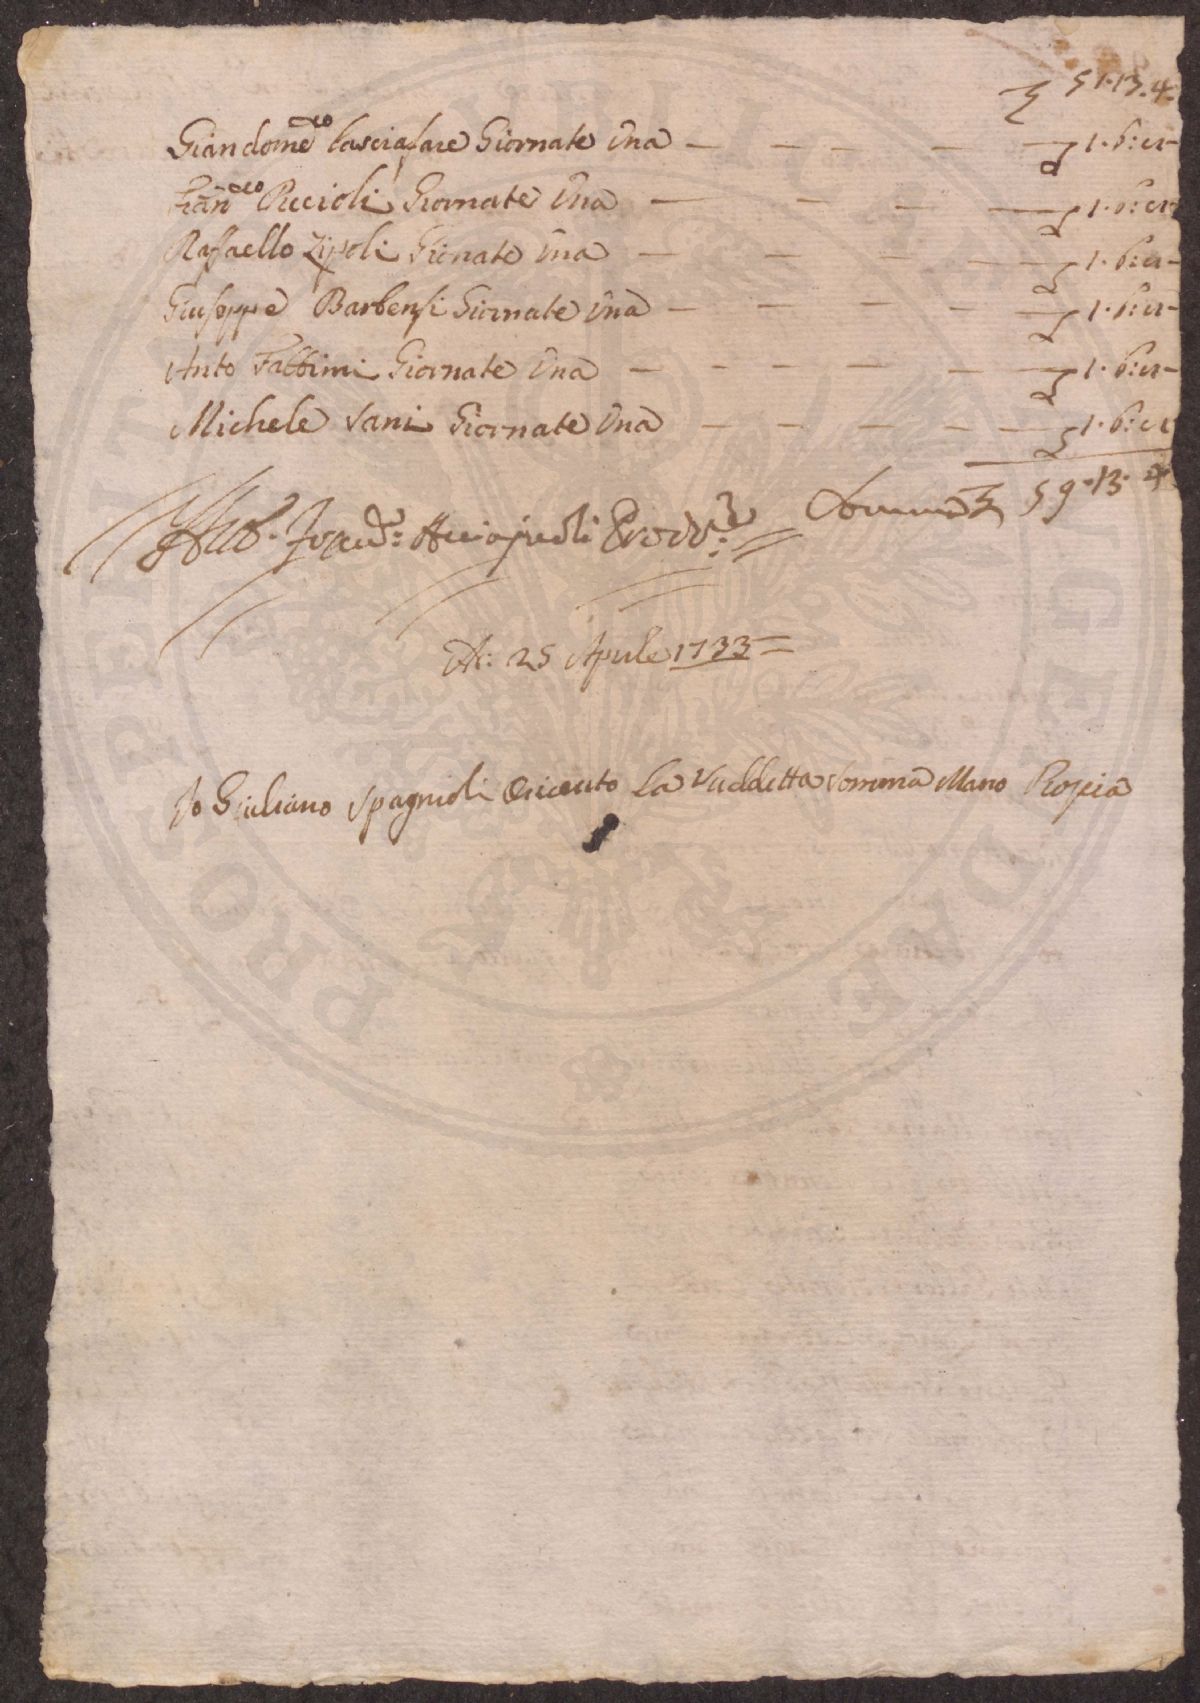 51.13.4
Giandomen.co Lasciafare Giornate Una — — — — 1.6:8
Fran.co Piccioli Giornate Una — — — — 1.6:8
Rafaello Zipoli Gionate Una — — — — 1.6:8
Giuseppe Barbensi Giornate Una — — — — 1.6:8
Anto Fabbini Giornate Una — — — — 1.6:8
Michele Vani Giornate Una — — — — 1.6:8
Acciajuoli Provv.re Somma 59.13.4
A: 25 Aprile 1733
Io Giuliano Spagnioli Riceuto La Suddetta Somma Mano Propia
PROSPERITATI PUBLICAE AUGENDAE